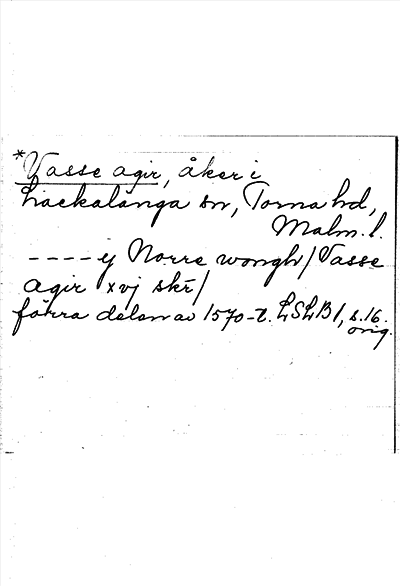 *Vasse agir, åker i
Hackalänga sn, Torna hd,
Malm. l.
---- y Norre wongh / Vasse
agir xvj skr /
förra delen av 1570-t. LSLB 1, s. 16.
orig.